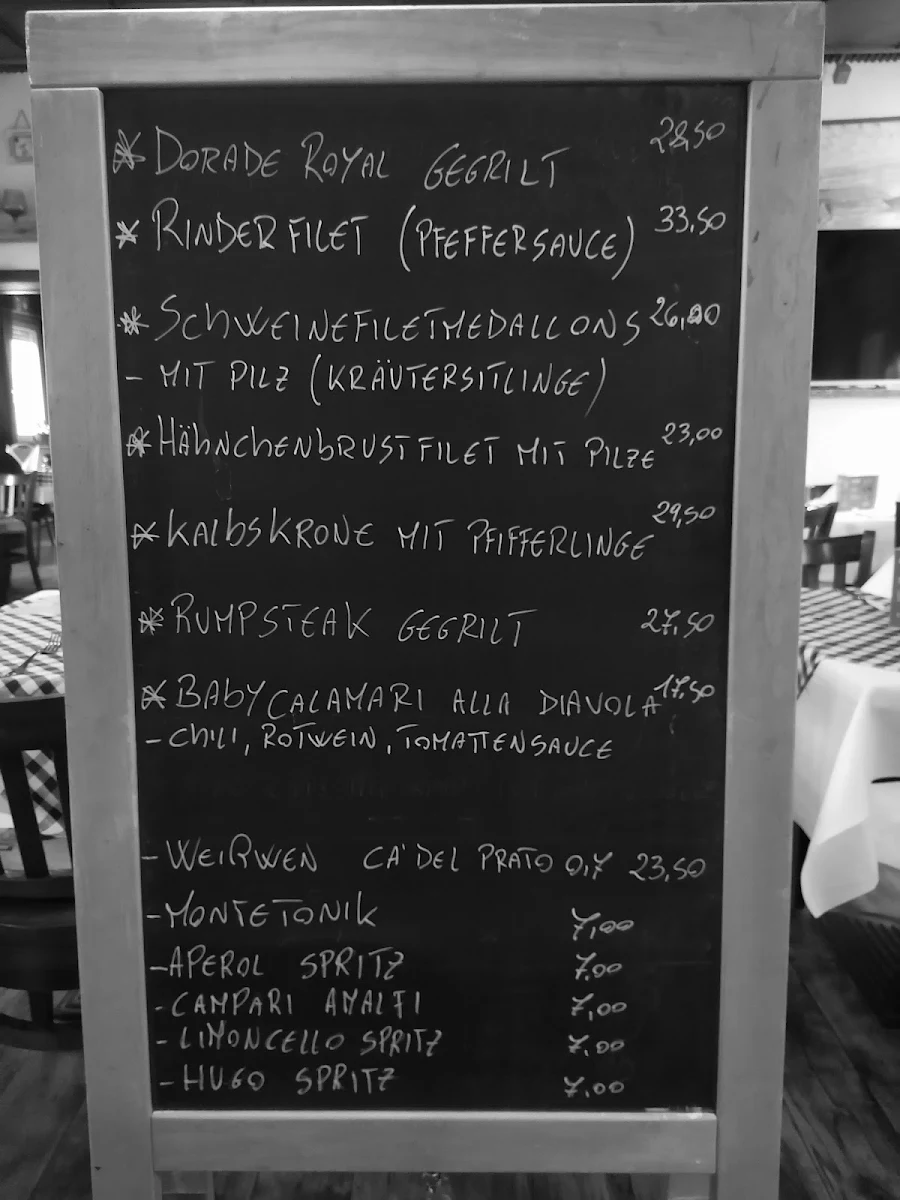 * DORADE ROYAL GEGRILT 28,50
* RINDERFILET (PFEFFERSAUCE) 33,50
* SCHWEINEFILETMEDALLONS 26,00
- MIT PILZ (KRÄUTERSITLINGE)
* HÄhNChENbRUSTFILET MIT PILZE 23,00
* KAlbSKRONE MIT PFIFFERLINGE 29,50
* RUMPSTEAK GEGRILT 27,50
* BABYCALAMARI ALLA DIAVOLA 17,50
- ChILI, ROTWEIN, TOMATTENSAUCE
- WEIßWEN CA' DEL PRATO 0,7 23,50
- MONTETONIK 7,00
- APEROL SPRITZ 7.00
- CAMPARI AMALFI 7,00
- LIMONCELLO SPRITZ 7,00
- HUGO SPRITZ 7,00